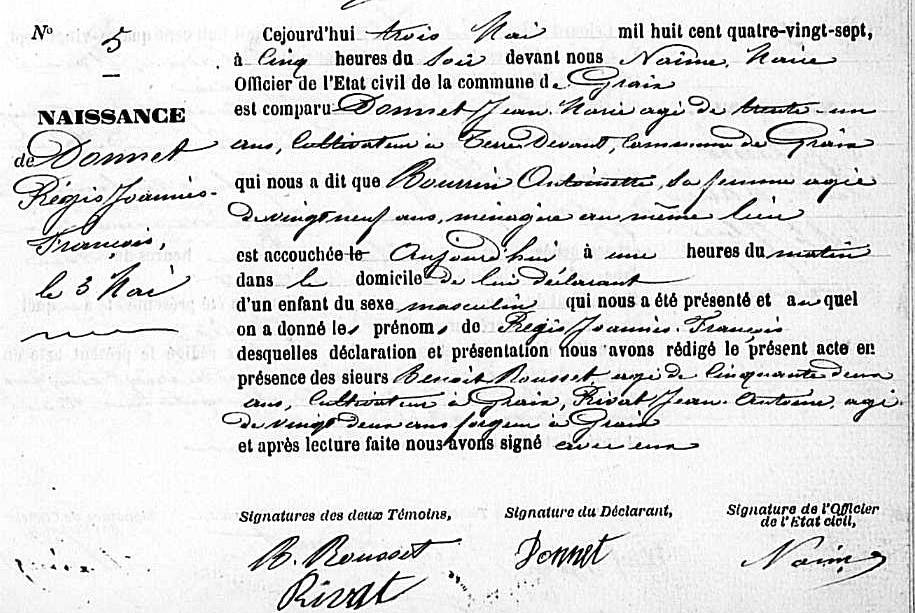 N° 5
NAISSANCE
de Donnet
Régis Joannès-
François,
le 3 Mai
Cejourd'hui trois Mai mil huit cent quatre-vingt-sept,
à Cinq heures du Soir devant nous Naime, Maire
Officier de l'Etat civil de la commune de Graix
est comparu Donnet Jean Marie agé de trente-un
ans, Cultivateur à Terre Devant, Commune de Graix
qui nous a dit que Bourrin Antoinette, sa femme agée
de vingt neuf ans, ménagère au même lieu
est accouchée le Aujourd'hui à une heures du matin
dans le domicile de lui déclarant
d'un enfant du sexe masculin qui nous a été présenté et auquel
on a donné les prénoms de Régis Joannès-François
desquelles déclaration et présentation nous avons rédigé le présent acte en
présence des sieurs Benoît Rousset agé de Cinquante deux
ans, Cultivateur à Graix, Rivat Jean-Antoine, agé
de vingt deux ans forgeur à Graix
et après lecture faite nous avons signé avec eux
Signatures des deux Témoins, Signature du Déclarant, Signature de l'Officier
de l'Etat civil,
B. Rousset Donnet Naime
Rivat